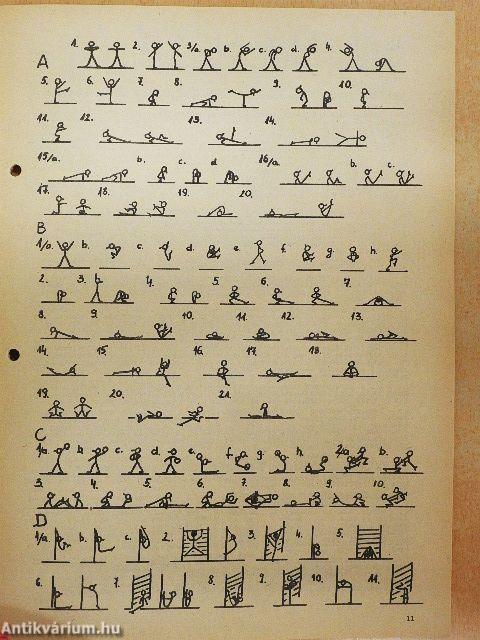 A
1. 2. 3/a. b. c. d. 4.
5. 6. 7. 8. 9. 10.
11. 12. 13. 14.
15/a. b. c. d 16/a. b. c.
17. 18. 19. 20.
B
1/a. b. c. d. e. f. g. h.
2. 3. 4. 5. 6. 7.
8. 9. 10. 11. 12. 13.
14. 15. 16. 17. 18.
19. 20. 21.
C
1/a. b. c. d. e. f. g. h. 2/a. b.
3. 4. 5. 6. 7. 8. 9. 10.
D
1/a. b. c. 2. 3. 4. 5.
6. 7. 8. 9. 10. 11.
11
Antikvárium.hu